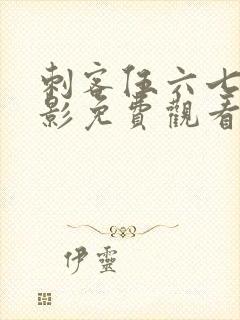 刺客伍六七
影免費觀看
伊靈